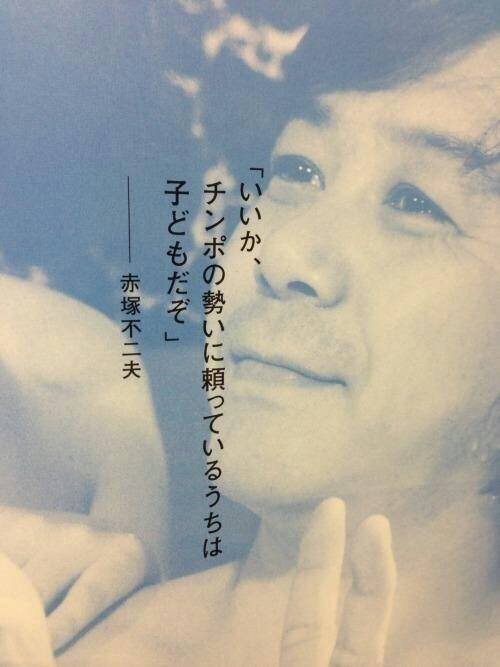 「いいか、
チンポの勢いに頼っているうちは
子どもだぞ」
── 赤塚不二夫